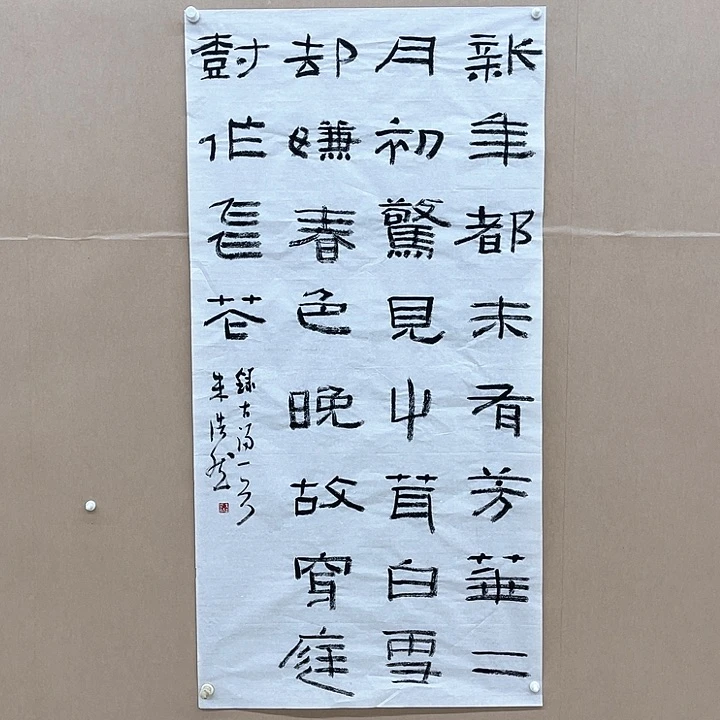 新年都未有芳華二
月初驚見屮芽白雪
却嫌春色晚故穿庭
尌作飛花
錄古詩一首
朱浩然